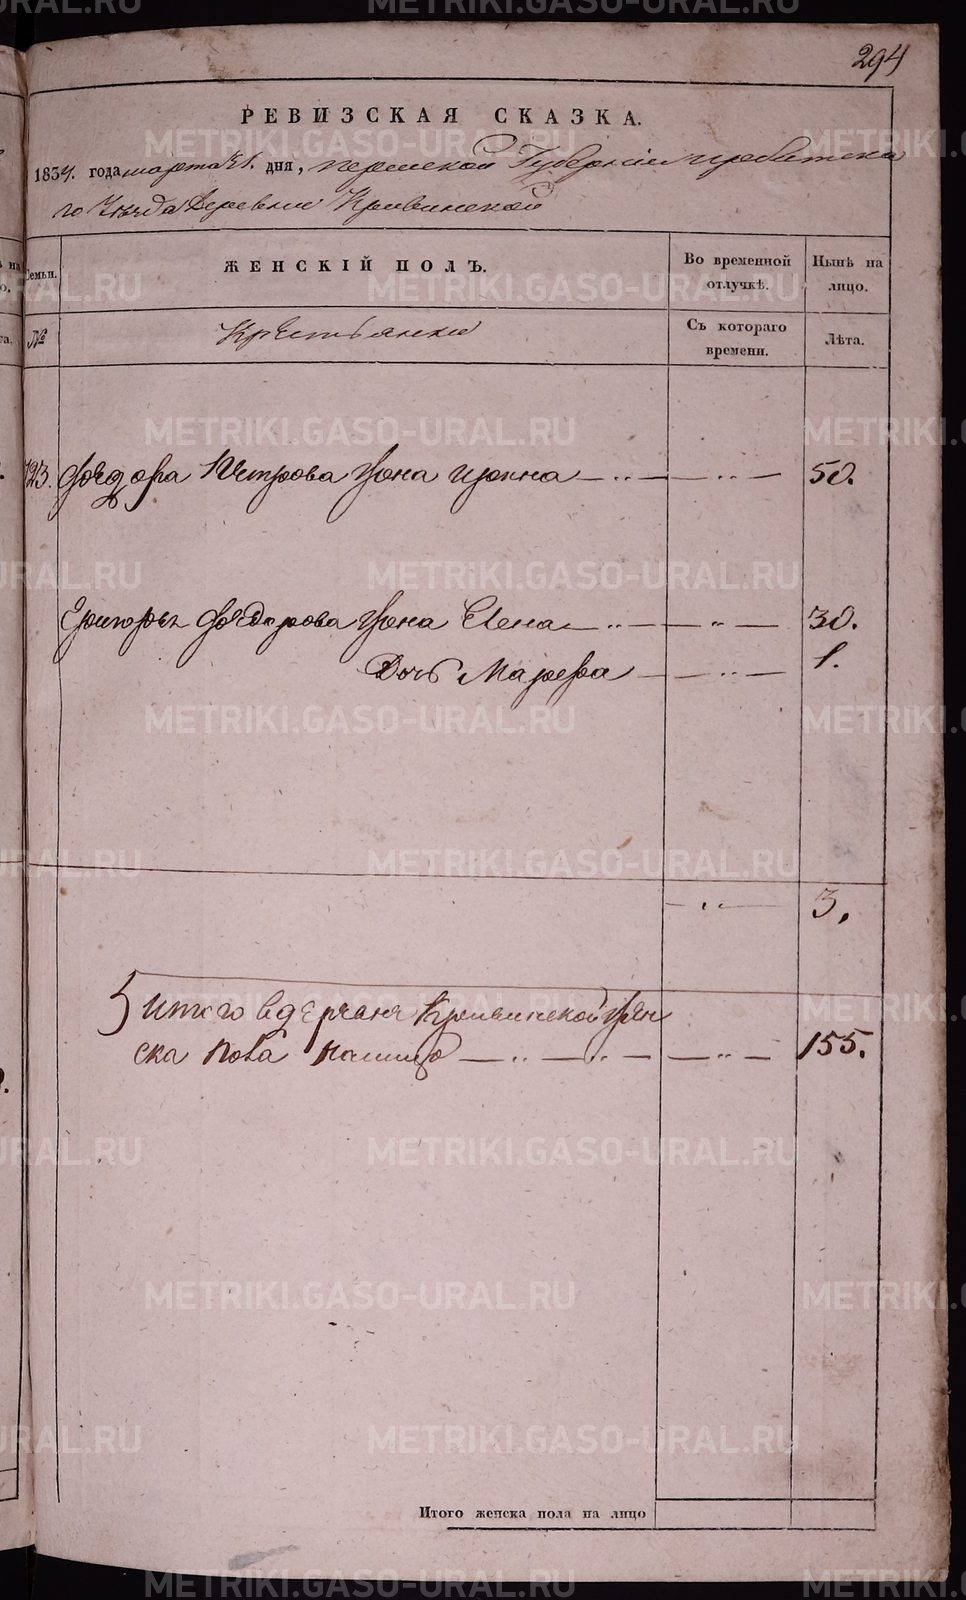 294
РЕВИЗСКАЯ СКАЗКА.
1834. года марта 31. дня, пермской Губернии ирбитска
го Уезда Деревни Кривинской
Семьи.
ЖЕНСКІЙ ПОЛЪ.
Во временной отлучкѣ.
Нынѣ на лицо.
№
Крестьянки
Съ котораго времени.
Лѣта.
123. Фёдора Петрова жена ирина — .. — — .. — 50.
Григорья Фёдорова жена Елена — .. — — .. — 30.
Дочь Марфа — — .. — 1.
— .. — 3.
итого в деревне Кривинской жен
ска пола налицо — .. — .. — — .. — 155.
Итого женска пола на лицо
METRIKI.GASO-URAL.RU